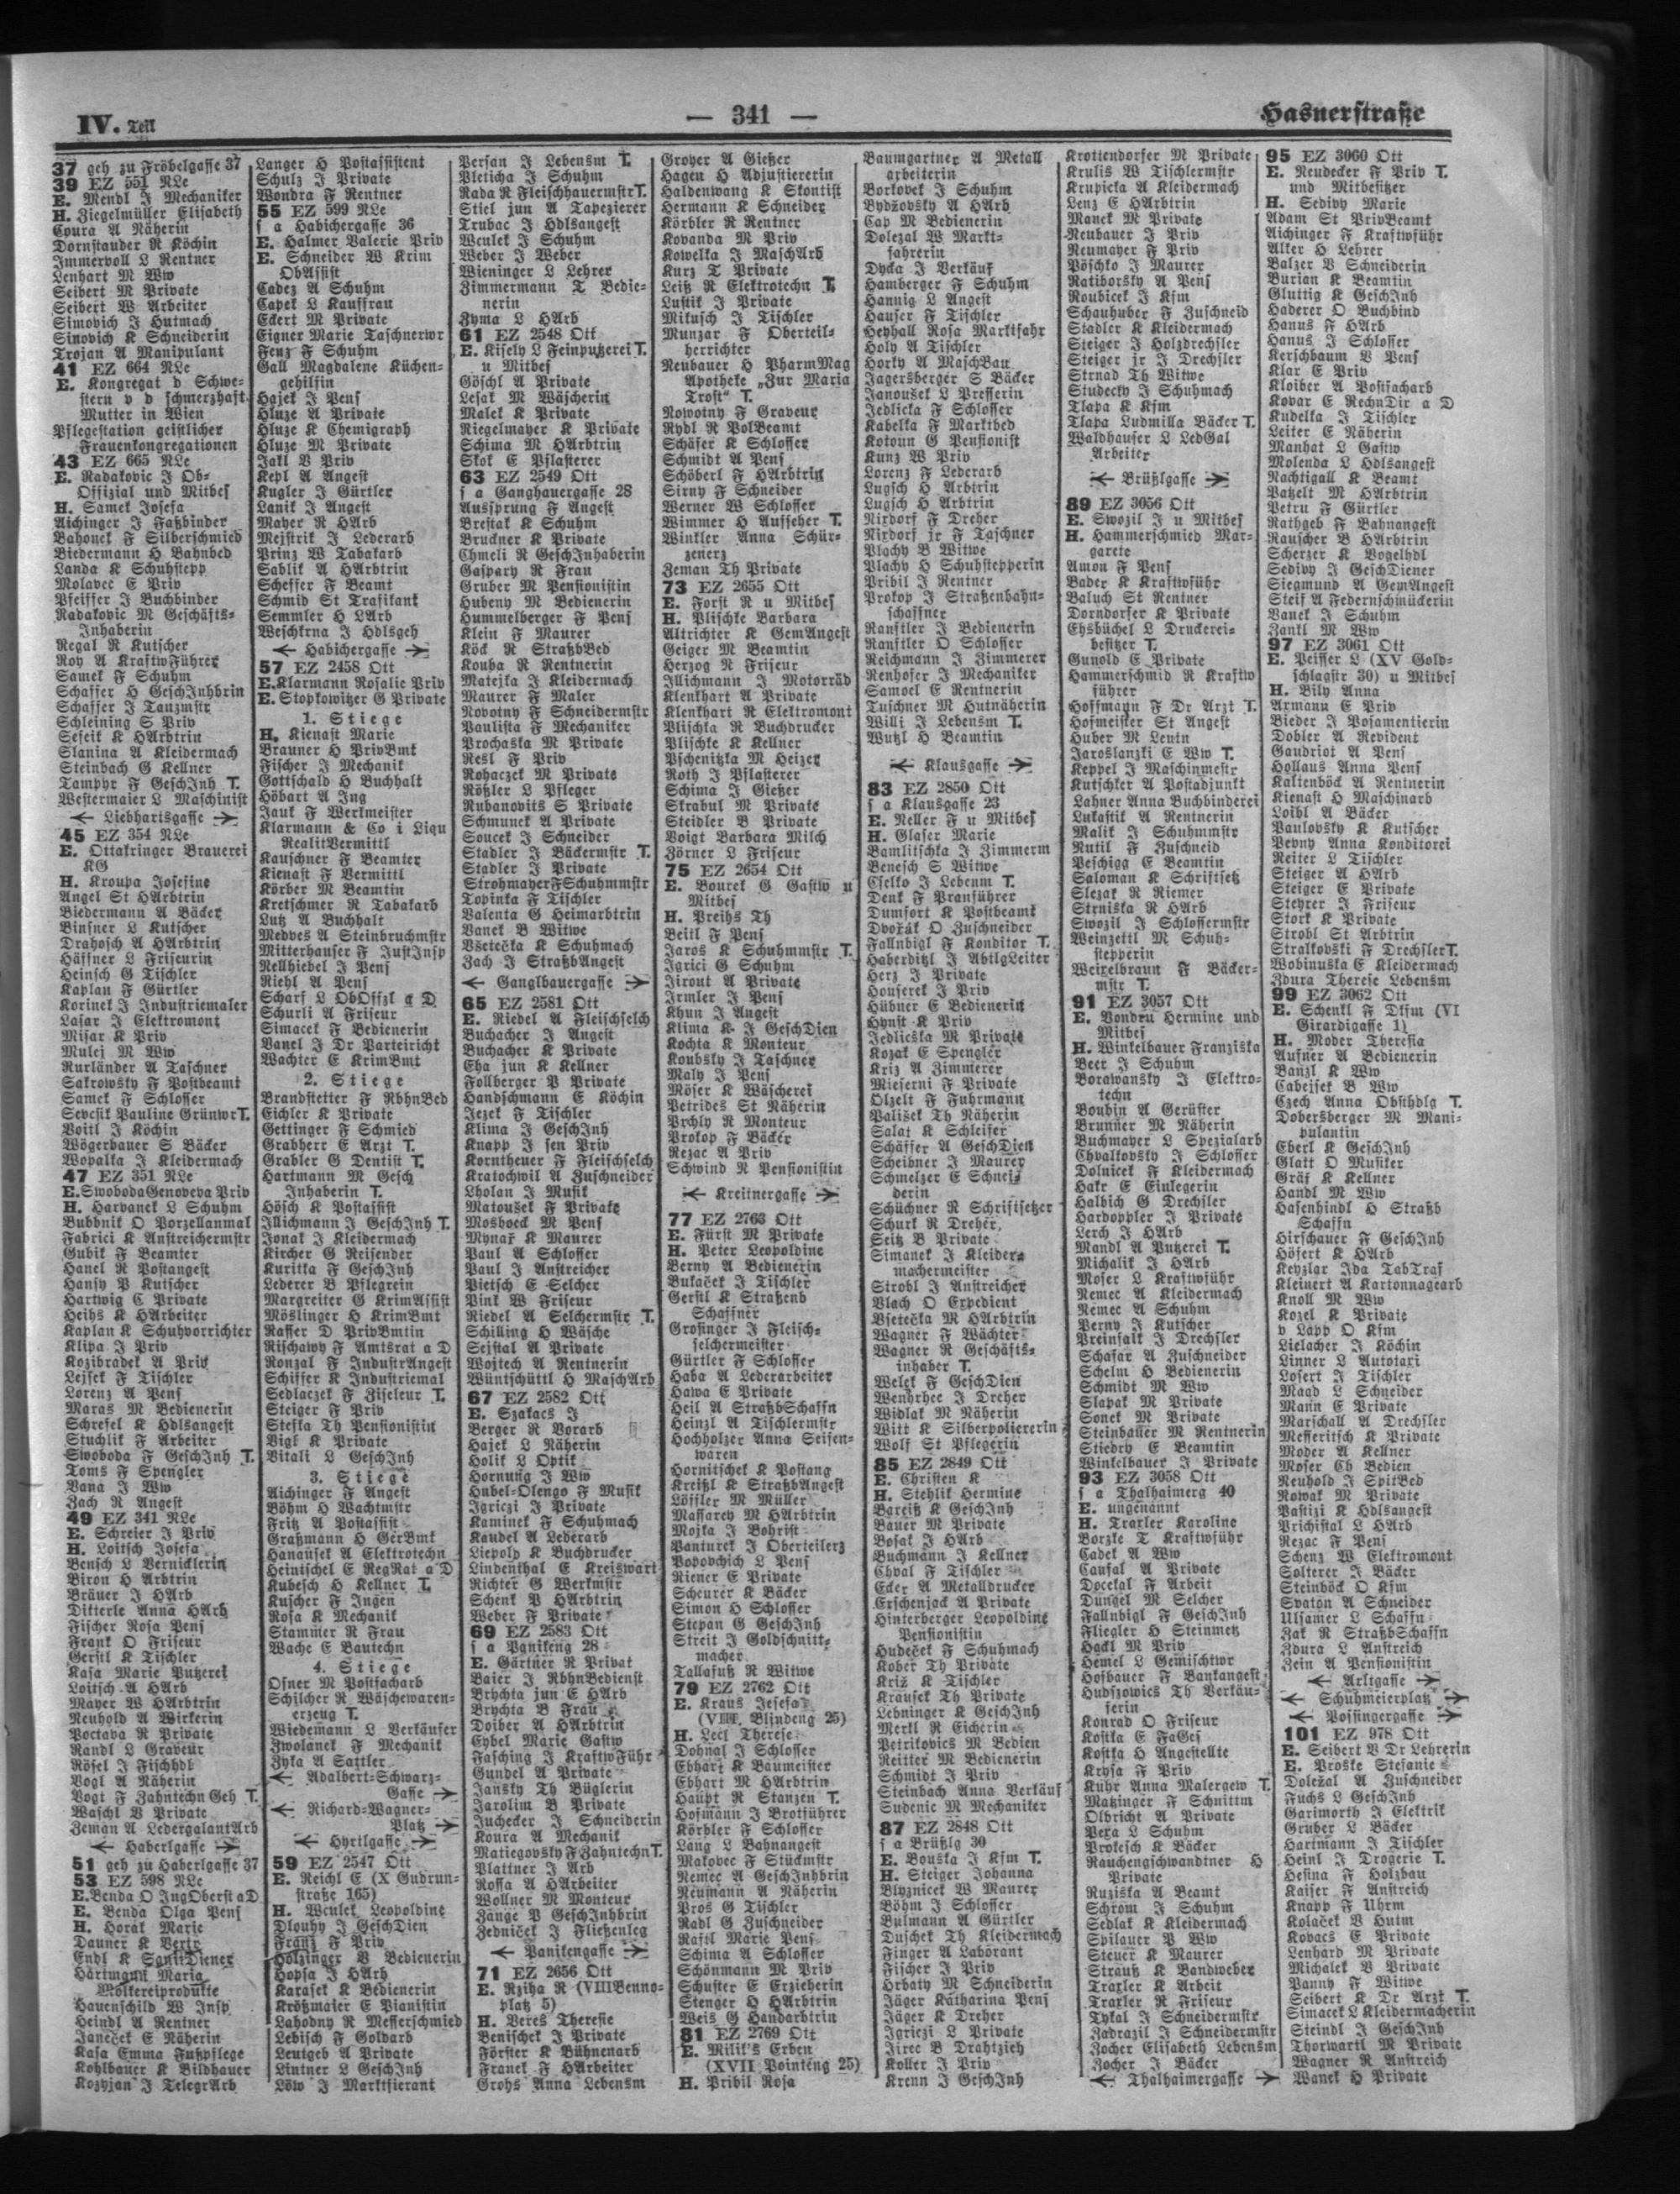 IV. Teil
— 341 —
Hasnerstraße
37 geh zu Fröbelgasse 37
39 EZ 551 NLe
E. Mendl J Mechaniker
H. Ziegelmüller Elisabeth
Cpura A Näherin
Dornstauder R Köchin
Immervoll L Rentner
Lenhart M Ww
Seibert M Private
Seibert W Arbeiter
Simovich J Hutmach
Sinovich K Schneiderin
Trojan A Manipulant
41 EZ 664 NLe
E. Kongregat d Schwe-
stern v d schmerzhaft
Mutter in Wien
Pflegestation geistlicher
Frauenkongregationen
43 EZ 665 NLe
E. Radakovic J Ob-
Offizial und Mitbes
H. Samek Josefa
Aichinger J Faßbinder
Bahonek F Silberschmied
Biedermann H Bahnbed
Landa K Schuhstepp
Molavec E Priv
Pfeiffer J Buchbinder
Radakovic M Geschäfts-
Inhaberin
Regal R Kutscher
Roy A KraftwFührer
Samek F Schuhm
Schaffer H GeschInhbrin
Schaffer J Tanzmstr
Schleining S Priv
Seseik K HArbtrin
Slanina A Kleidermach
Steinbach G Kellner
Tamphr F GeschInh T.
Westermaier L Maschinist
← Liebhartsgasse →
45 EZ 354 NLe
E. Ottakringer Brauerei
KG
H. Kroupa Josefine
Angel St HArbtrin
Biedermann A Bäcker
Binsner L Kutscher
Drahosch A HArbtrin
Häffner L Friseurin
Heinsch G Tischler
Kaplan F Gürtler
Korinek J Industriemaler
Lasar J Elektromont
Misar K Priv
Mulej M Ww
Rurländer A Taschner
Sakrowsky F Postbeamt
Samek F Schlosser
Sevcsik Pauline GrünwrT.
Voitl J Köchin
Wögerbauer S Bäcker
Wopalka J Kleidermach
47 EZ 351 NLe
E. Swoboda Genoveva Priv
H. Harvanek L Schuhm
Bubbnik O Porzellanmal
Fabrici K Anstreichermstr
Gubik F Beamter
Hanel R Postangest
Hansy P Kutscher
Hartwig C Private
Heihs K HArbeiter
Kaplan K Schuhvorrichter
Klipa J Priv
Kozibradek A Priv
Lejsek F Tischler
Lorenz A Pens
Maras M Bedienerin
Schrefel K Hdlsangest
Stuchlik F Arbeiter
Swoboda F GeschInh T.
Toms F Spengler
Vana J Ww
Zach R Angest
49 EZ 341 NLe
E. Schreier J Priv
H. Loitsch Josefa
Bensch L Vernicklerin
Biron H Arbtrin
Bräuer J HArb
Ditterle Anna HArb
Fischer Rosa Pens
Frank O Friseur
Gerstl K Tischler
Kasa Marie Putzerei
Loitsch A HArb
Mayer W HArbtrin
Neuhold A Wirkerin
Poctava R Private
Randl L Graveur
Rösel J Fischhdl
Vogl A Näherin
Vogt F Zahntechn Geh T.
Waschl V Private
Zeman A LedergalantArb
← Haberlgasse →
51 geh zu Haberlgasse 37
53 EZ 598 NLe
E. Benda O IngOberst aD
E. Benda Olga Pens
H. Horak Marie
Dauner K Vertr
Endl K SanitDiener
Hartmann Maria
Molkereiprodukte
Hauenschild W Insp
Heindl A Rentner
Janeček E Näherin
Kasa Emma Fußpflege
Kohlbauer K Bildhauer
Kozyjan J TelegrArb
Langer H Postassistent
Schulz J Private
Wondra F Rentner
55 EZ 599 NLe
s a Habichergasse 36
E. Halmer Valerie Priv
E. Schneider W Krim
ObAssist
Cadez A Schuhm
Capek L Kauffrau
Eckert M Private
Eigner Marie Taschnerwr
Fenz F Schuhm
Gall Magdalene Küchen-
gehilfin
Hajek J Pens
Hluze A Private
Hluze K Chemigraph
Hluze M Private
Jakl V Priv
Kepl A Angest
Kugler J Gürtler
Lanik J Angest
Mayer R HArb
Mejstrik J Lederarb
Prinz W Tabakarb
Sablik A HArbtrin
Scheffer F Beamt
Schmid St Trafikant
Semmler H LArb
Weschkrna J Hdlsgeh
← Habichergasse →
57 EZ 2458 Ott
E. Klarmann Rosalie Priv
E. Stopkowitzer G Private
1. Stiege
H. Kienast Marie
Brauner H PrivBmt
Fischer J Mechanik
Gottschald H Buchhalt
Höbart A Ing
Jauk F Werkmeister
Klarmann & Co i Liqu
RealitVermittl
Kauschner F Beamter
Kienast F Vermittl
Körber M Beamtin
Kretschmer R Tabakarb
Lutz A Buchhalt
Medves A Steinbruchmstr
Mitterhauser F JustInsp
Nellhiebel J Pens
Riehl A Pens
Scharf L ObOffzl a D
Schurli A Friseur
Simacek F Bedienerin
Vanek J Dr Parteiricht
Wachter E KrimBmt
2. Stiege
Brandstetter F RbhnBed
Eichler K Private
Gettinger F Schmied
Grabherr E Arzt T.
Grabler G Dentist T.
Hartmann M Gesch
Inhaberin T.
Hösch K Postassist
Illichmann J GeschInh T.
Jonak J Kleidermach
Kircher G Reisender
Kuritka F GeschInh
Lederer B Pflegrein
Margreiter G KrimAssist
Möslinger H KrimBmt
Raffer D PrivBmtin
Rischawy F Amtsrat a D
Ronzal F IndustrAngest
Schiffer K Industriemal
Sedlaczek F Ziseleur T.
Steiger F Priv
Steska Th Pensionistin
Vigl K Private
Vitali L GeschInh
3. Stiege
Aichinger F Angest
Böhm H Wachtmstr
Fritz A Postassist
Graßmann H GerBmt
Hanausek A Elektrotechn
Heintschel E RegRat a D
Kubesch H Kellner T.
Kuscher F Ingen
Rosa K Mechanik
Stammer R Frau
Wache E Bautechn
4. Stiege
Ofner M Postfacharb
Schilcher R Wäschewaren-
erzeug T.
Wiedemann L Verkäufer
Zwolanek F Mechanik
Zyka A Sattler
← Adalbert-Schwarz-
Gasse →
← Richard-Wagner-
Platz →
← Hyrtlgasse →
59 EZ 2547 Ott
E. Reichl E (X Gudrun-
straße 165)
H. Weulek Leopoldine
Dlouhy J GeschDien
Franz F Priv
Holzinger B Bedienerin
Hopsa J HArb
Karasek K Bedienerin
Krößmaier E Pianistin
Lahodny R Messerschmied
Lebisch F Goldarb
Leutgeb A Private
Lintner L GeschInh
Löw J Marktfierant
Persan J Lebensm T.
Pleticha J Schuhm
Rada R Fleischhauermstr T.
Stiel jun A Tapezierer
Trubac J Hdlsangest
Weulek J Schuhm
Weber J Weber
Wieninger L Lehrer
Zimmermann T Bedie-
nerin
Zyma L HArb
61 EZ 2548 Ott
E. Kisely L Feinputzerei T.
u Mitbes
Göschl A Private
Lesak M Wäscherin
Malek K Private
Riegelmayer K Private
Schima M HArbtrin
Skok E Pflasterer
63 EZ 2549 Ott
s a Ganghauergasse 28
Aussprung F Angest
Brestak K Schuhm
Bruckner K Private
Chmeli R GeschInhaberin
Gaspary R Frau
Gruber M Pensionistin
Hubeny M Bedienerin
Hummelberger F Pens
Klein F Maurer
Köck R StraßbBed
Kouba R Rentnerin
Matejka J Kleidermach
Maurer F Maler
Novotny F Schneidermstr
Paulista F Mechaniker
Prochaska M Private
Resl F Priv
Rohaczek M Private
Rößler L Pfleger
Rubanovits S Private
Schmunck A Private
Soucek J Schneider
Stadler J Bäckermstr T.
Stadler J Private
Strohmayer F Schuhmmstr
Topinka F Tischler
Valenta G Heimarbtrin
Vanek B Witwe
Všetečka K Schuhmach
Zach J StraßbAngest
← Ganglbauergasse →
65 EZ 2581 Ott
E. Riedel A Fleischselch
Buchacher J Angest
Buchacher K Private
Eha jun K Kellner
Follberger P Private
Handschmann E Köchin
Jezek F Tischler
Klima J GeschInh
Knapp J sen Priv
Korntheuer F Fleischselch
Kratochwil A Zuschneider
Lholan J Musik
Matousek F Private
Mosboeck M Pens
Mynař K Maurer
Paul A Schlosser
Paul J Anstreicher
Pietsch E Selcher
Pink W Friseur
Riedel A Selchermstr T.
Schilling H Wäsche
Sejstal A Private
Wojtech A Rentnerin
Wüntschüttl H MaschArb
67 EZ 2582 Ott
E. Szakacs J
Berger R Vorarb
Hajek L Näherin
Holik L Optik
Hornung J Ww
Hubel-Olengo F Musik
Jgriczi J Private
Kaminek F Schuhmach
Kandel A Lederarb
Liepold K Buchdrucker
Lindenthal E Kreiswart
Richter G Werkmstr
Schenk P HArbtrin
Weber F Private
69 EZ 2583 Ott
s a Panikeng 28
E. Gärtner R Privat
Baier J RbhnBedienst
Brychta jun E HArb
Brychta B Frau
Doiber A HArbtrin
Eybel Marie Gastw
Fasching J KraftwFühr
Gundel A Private
Jansky Th Büglerin
Jarolim B Private
Juchecker J Schneiderin
Koura A Mechanik
Matiegovsky F Zahntechn T.
Plattner J Arb
Rossa A HArbeiter
Wollner M Monteur
Zange P GeschInhbrin
Zedniček J Fließenleg
← Panikengasse →
71 EZ 2656 Ott
E. Rziha R (VIII Benno-
platz 5)
H. Veres Therese
Benischek J Private
Förster K Bühnenarb
Franek F HArbeiter
Grohs Anna Lebensm
Groyer A Gießer
Hagen H Adjustiererin
Haldenwang K Skontist
Hermann K Schneider
Körbler R Rentner
Kovanda M Priv
Kowelka J MaschArb
Kurz T Private
Leiß R Elektrotechn T.
Lustik J Private
Mikusch J Tischler
Munzar F Oberteil-
herrichter
Neubauer H PharmMag
Apotheke „Zur Maria
Trost" T.
Nowotny F Graveur
Rydl R PolBeamt
Schäfer K Schlosser
Schmidt A Pens
Schöberl F HArbtrin
Sirny F Schneider
Werner W Schlosser
Wimmer H Aufseher T.
Winkler Anna Schür-
zenerz
Zeman Th Private
73 EZ 2655 Ott
E. Forst R u Mitbes
H. Plischke Barbara
Altrichter K GemAngest
Geiger M Beamtin
Herzog R Friseur
Illichmann J Motorräd
Klenkhart A Private
Klenkhart R Elektromont
Plischka R Buchdrucker
Plischke K Kellner
Pschenitzka M Heizer
Roth J Pflasterer
Schima J Gießer
Skrabul M Private
Steidler B Private
Voigt Barbara Milch
Zörner L Friseur
75 EZ 2654 Ott
E. Bourek G Gastw u
Mitbes
H. Preihs Th
Beitl F Pens
Jaros K Schuhmmstr T.
Jgrici G Schuhm
Jirout A Private
Irmler J Pens
Khun J Angest
Klima K J GeschDien
Kochta K Monteur
Koubsky J Taschner
Maly J Pens
Möser K Wäscherei
Petrides St Näherin
Prchly R Monteur
Prokop F Bäcker
Rezac A Priv
Schwind R Pensionistin
← Kreitnergasse →
77 EZ 2763 Ott
E. Fürst M Private
H. Peter Leopoldine
Berny A Bedienerin
Bukaček J Tischler
Gerstl K Straßenb
Schaffner
Grosinger J Fleisch-
selchermeister
Gürtler F Schlosser
Haba A Lederarbeiter
Hawa E Private
Heil A StraßbSchaffn
Heinzl A Tischlermstr
Hochholzer Anna Seifen-
waren
Hornitschek K Postang
Kreißl K StraßbAngest
Löffler M Müller
Massarey M HArbtrin
Mojka J Bohrist
Panturek J Oberteilerz
Popovchich L Pens
Riener E Private
Scheurer K Bäcker
Simon H Schlosser
Stepan G GeschInh
Streit J Goldschnitt-
macher
Tallafuß R Witwe
79 EZ 2762 Ott
E. Kraus Josefa
(VIII, Blindeng 25)
H. Leel Therese
Dohnal J Schlosser
Ebhart K Baumeister
Ebhart M HArbtrin
Haupt R Stanzen T.
Hofmann J Brotführer
Körbler F Schlosser
Lang L Bahnangest
Makovec F Stückmstr
Nemec A GeschInhbrin
Neumann A Näherin
Pros G Tischler
Radl G Zuschneider
Rastl Marie Pens
Schima A Schlosser
Schönmann M Priv
Schuster E Erzieherin
Stenger H HArbtrin
Weis G Handarbtrin
81 EZ 2769 Ott
E. Milik's Erben
(XVII Pointeng 25)
H. Pribil Rosa
Baumgartner A Metall
arbeiterin
Borkovek J Schuhm
Bydžovsky A HArb
Cap M Bedienerin
Dolezal W Markt-
fahrerin
Dycka J Verkäuf
Hamberger F Schuhm
Hannig L Angest
Hauser F Tischler
Heyhall Rosa Marktfahr
Holy A Tischler
Horky A MaschBau
Jagersberger S Bäcker
Janoušek L Presserin
Jedlicka F Schlosser
Kabelka F Marktbed
Kotoun G Pensionist
Kunz W Priv
Lorenz F Lederarb
Lugsch H Arbtrin
Lugsch H Arbtrin
Nixdorf F Dreher
Nixdorf jr F Taschner
Plachy B Witwe
Plachy H Schuhstepperin
Pribil J Rentner
Prokop J Straßenbahn-
schaffner
Ranftler J Bedienerin
Ranftler O Schlosser
Reichmann J Zimmerer
Renhofer J Mechaniker
Samoel E Rentnerin
Tuschner M Hutnäherin
Willi J Lebensm T.
Wutzl H Beamtin
← Klausgasse →
83 EZ 2850 Ott
s a Klausgasse 23
E. Neller F u Mitbes
H. Glaser Marie
Bamlitschka J Zimmerm
Benesch S Witwe
Cselko J Lebensm T.
Denk F Pranführer
Dumfort K Postbeamt
Dvořák O Zuschneider
Fallnbigl F Konditor T.
Haberditzl J AbtlgLeiter
Herz J Private
Houserek J Priv
Hübner E Bedienerin
Hynst K Priv
Jedlicška M Private
Kozak E Spengler
Kriz A Zimmerer
Mieserni F Private
Olzelt F Fuhrmann
Palisek Th Näherin
Salat K Schleifer
Schäffer A GeschDien
Scheibner J Maurer
Schmelzer E Schnei-
derin
Schüchner R Schriftsetzer
Schurk R Dreher
Seitz B Private
Simanek J Kleider-
machermeister
Strobl J Anstreicher
Vlach O Expedient
Vsetečka M HArbtrin
Wagner F Wächter
Wagner R Geschäfts-
inhaber T.
Welek F GeschDien
Wenhrhee J Dreher
Widlak M Näherin
Witt K Silberpoliererin
Wolf St Pflegerin
85 EZ 2849 Ott
E. Christen K
H. Stehlik Hermine
Bareiß K GeschInh
Bauer M Private
Bosak J HArb
Buchmann J Kellner
Chval F Tischler
Ecker A Metalldrucker
Erschenjack A Private
Hinterberger Leopoldine
Pensionistin
Hudeček F Schuhmach
Kober Th Private
Križ K Tischler
Krausek Th Private
Lebninger K GeschInh
Merkl R Eicherin
Petrikovics M Bedien
Reitter M Bedienerin
Schmidt J Priv
Steinbach Anna Verkäuf
Sudenic M Mechaniker
87 EZ 2848 Ott
s a Brüßlg 30
E. Bouska J Kfm T.
H. Steiger Johanna
Blyznicek W Maurer
Böhm J Schlosser
Bulmann A Gürtler
Duschek Th Kleidermach
Finger A Laborant
Fischer J Priv
Hrbaty M Schneiderin
Jäger Katharina Pens
Jäger K Dreher
Jgriczi L Private
Jirec B Drahtzieh
Koller J Priv
Krenn J GeschInh
Krottendorfer M Private
Krulis W Tischlermstr
Krupicka A Kleidermach
Lenz E HArbtrin
Manek M Private
Neubauer J Priv
Neumayer F Priv
Pöschko J Maurer
Ratiborsky A Pens
Roubicek J Kfm
Schauhuber F Zuschneid
Stadler K Kleidermach
Steiger J Holzdrechsler
Steiger jr J Drechsler
Strnad Th Witwe
Studecky J Schuhmach
Tlapa K Kfm
Tlapa Ludmilla Bäcker T.
Waldhauser L LedGal
Arbeiter
← Brüßlgasse →
89 EZ 3056 Ott
E. Swozil J u Mitbes
H. Hammerschmied Mar-
garete
Amon F Pens
Bader K Kraftwführ
Baluch St Rentner
Dorndorfer K Private
Ehsbüchel L Druckerei-
besitzer T.
Gunold E Private
Hammerschmid R Kraftw
führer
Hoffmann F Dr Arzt T.
Hofmeister St Angest
Huber M Leutn
Jaroslanzki E Ww T.
Keppel J Maschinmstr
Kutschker A Postadjunkt
Lahner Anna Buchbinderei
Lukastik A Rentnerin
Malik J Schuhmmstr
Nutil F Zuschneid
Peschiga E Beamtin
Saloman K Schriftsetz
Slezak R Riemer
Strniska R HArb
Swozil J Schlossermstr
Weinzettl M Schuh-
stepperin
Weixelbraun F Bäcker-
mstr T.
91 EZ 3057 Ott
E. Vondru Hermine und
Mitbes
H. Winkelbauer Franziska
Beer J Schuhm
Borawansky J Elektro-
techn
Boubin A Gerüster
Brunner M Näherin
Buchmayer L Spezialarb
Chvalkovsky J Schlosser
Dolnicek F Kleidermach
Hakr E Einlegerin
Halbich G Drechsler
Hardoppler J Private
Lerch J HArb
Mandl A Putzerei T.
Michalik J HArb
Moser L Kraftwführ
Nemec A Kleidermach
Nemec A Schuhm
Perny J Kutscher
Preinfalk J Drechsler
Schafar A Zuschneider
Schelm H Bedienerin
Schmidt M Ww
Slapak M Private
Sonek M Private
Steinbauer M Rentnerin
Stiedry E Beamtin
Winkelbauer J Private
93 EZ 3058 Ott
s a Thalhaimerg 40
E. ungenannt
H. Traxler Karoline
Borzke T Kraftwführ
Cadek A Ww
Causal A Private
Docekal F Arbeit
Düngel M Selcher
Fallnbigl F GeschInh
Fliegler H Steinmetz
Hackl M Priv
Hemel L Gemischtwr
Hofbauer F Bankangest
Hudszowics Th Verkäu-
ferin
Konrad O Friseur
Kostka E FaGes
Kostka H Angestellte
Krysa F Priv
Kühr Anna Malergew T.
Matzinger F Schnittm
Olbricht A Private
Pexa L Schuhm
Prokesch K Bäcker
Rauchengschwandtner H
Private
Ruziska A Beamt
Schrom J Schuhm
Sedlak K Kleidermach
Spilauer P Ww
Steuer K Maurer
Strauß K Bandweber
Traxler K Arbeit
Traxler R Friseur
Tykal J Schneidermstr
Zadrazil J Schneidermstr
Zocher Elisabeth Lebensm
Zocher J Bäcker
← Thalhaimergasse →
95 EZ 3060 Ott
E. Neudecker F Priv T.
und Mitbesitzer
H. Sedivy Marie
Adam St PrivBeamt
Aichinger F Kraftwführ
Alker H Lehrer
Balzer B Schneiderin
Burian K Beamtin
Gluttig K GeschInh
Haderer O Buchbind
Hanus F HArb
Hanus J Schlosser
Kerschbaum V Pens
Klar E Priv
Kloiber A Postfacharb
Kovar E RechnDir a D
Kudelka J Tischler
Leiter E Näherin
Manhat L Gastw
Molenda L Hdlsangest
Nachtigall K Beamt
Patzelt M HArbtrin
Petru F Gürtler
Rathgeb F Bahnangest
Rauscher B HArbtrin
Scherzer K Vogelhdl
Sedivy J GeschDiener
Siegmund A GemAngest
Steif A Federnschmückerin
Vanek J Schuhm
Zankl M Ww
97 EZ 3061 Ott
E. Peiffer L (XV Gold-
schlagstr 30) u Mitbes
H. Bily Anna
Axmann E Priv
Bieder J Posamentierin
Dobler A Revident
Gaudriot A Pens
Hollaus Anna Pens
Kaltenböck A Rentnerin
Kienast H Maschinarb
Loibl A Bäcker
Paulovsky K Kutscher
Pevny Anna Konditorei
Reiter L Tischler
Steiger A HArb
Steiger E Private
Steyrer J Friseur
Stork K Private
Strobl St Arbtrin
Stralkovski F Drechsler T.
Wobinuska E Kleidermach
Zdura Therese Lebensm
99 EZ 3062 Ott
E. Schenkl F Dkfm (VI
Girardigasse 1)
H. Moder Theresia
Aufner A Bedienerin
Banzl K Ww
Cabejsek B Ww
Czech Anna Obsthdlg T.
Dobersberger M Mani-
pulantin
Eberl K GeschInh
Glatt O Musiker
Gräf K Kellner
Handl M Ww
Hasenhindl H Straßb
Schaffn
Hirschauer F GeschInh
Höfert K HArb
Keyzlar Ida TabTraf
Kleinert A Kartonnagearb
Knoll M Ww
Kozel K Private
v Lapp O Kfm
Lielacher J Köchin
Linner L Autotaxi
Losert J Tischler
Maad L Schneider
Mann E Private
Marschall A Drechsler
Mefferitsch K Private
Moder A Kellner
Moser Ch Bedien
Neuhold J SpitBed
Nowak M Private
Pastizi K Hdlsangest
Prichistal L HArb
Rezac F Pens
Schenz W Elektromont
Solterer J Bäcker
Steinböck O Kfm
Svaton A Schneider
Ulsamer L Schaffn
Zak R StraßbSchaffn
Zdura L Anstreich
Zein A Pensionistin
← Arltgasse →
← Schuhmeierplatz →
← Possingergasse →
101 EZ 978 Ott
E. Seibert V Dr Lehrerin
E. Proske Stefanie
Doležal A Zuschneider
Fuchs L GeschInh
Garimorth J Elektrik
Gruber L Bäcker
Hartmann J Tischler
Heinl J Drogerie T.
Hesina F Holzbau
Kaiser F Anstreich
Knapp F Uhrm
Kolaček V Hutm
Kovacs E Private
Lenhard M Private
Michalek V Private
Panny F Witwe
Seibert K Dr Arzt T.
Simacek L Kleidermacherin
Steindl J GeschInh
Thorwartl M Private
Wagner R Anstreich
Wanek H Private